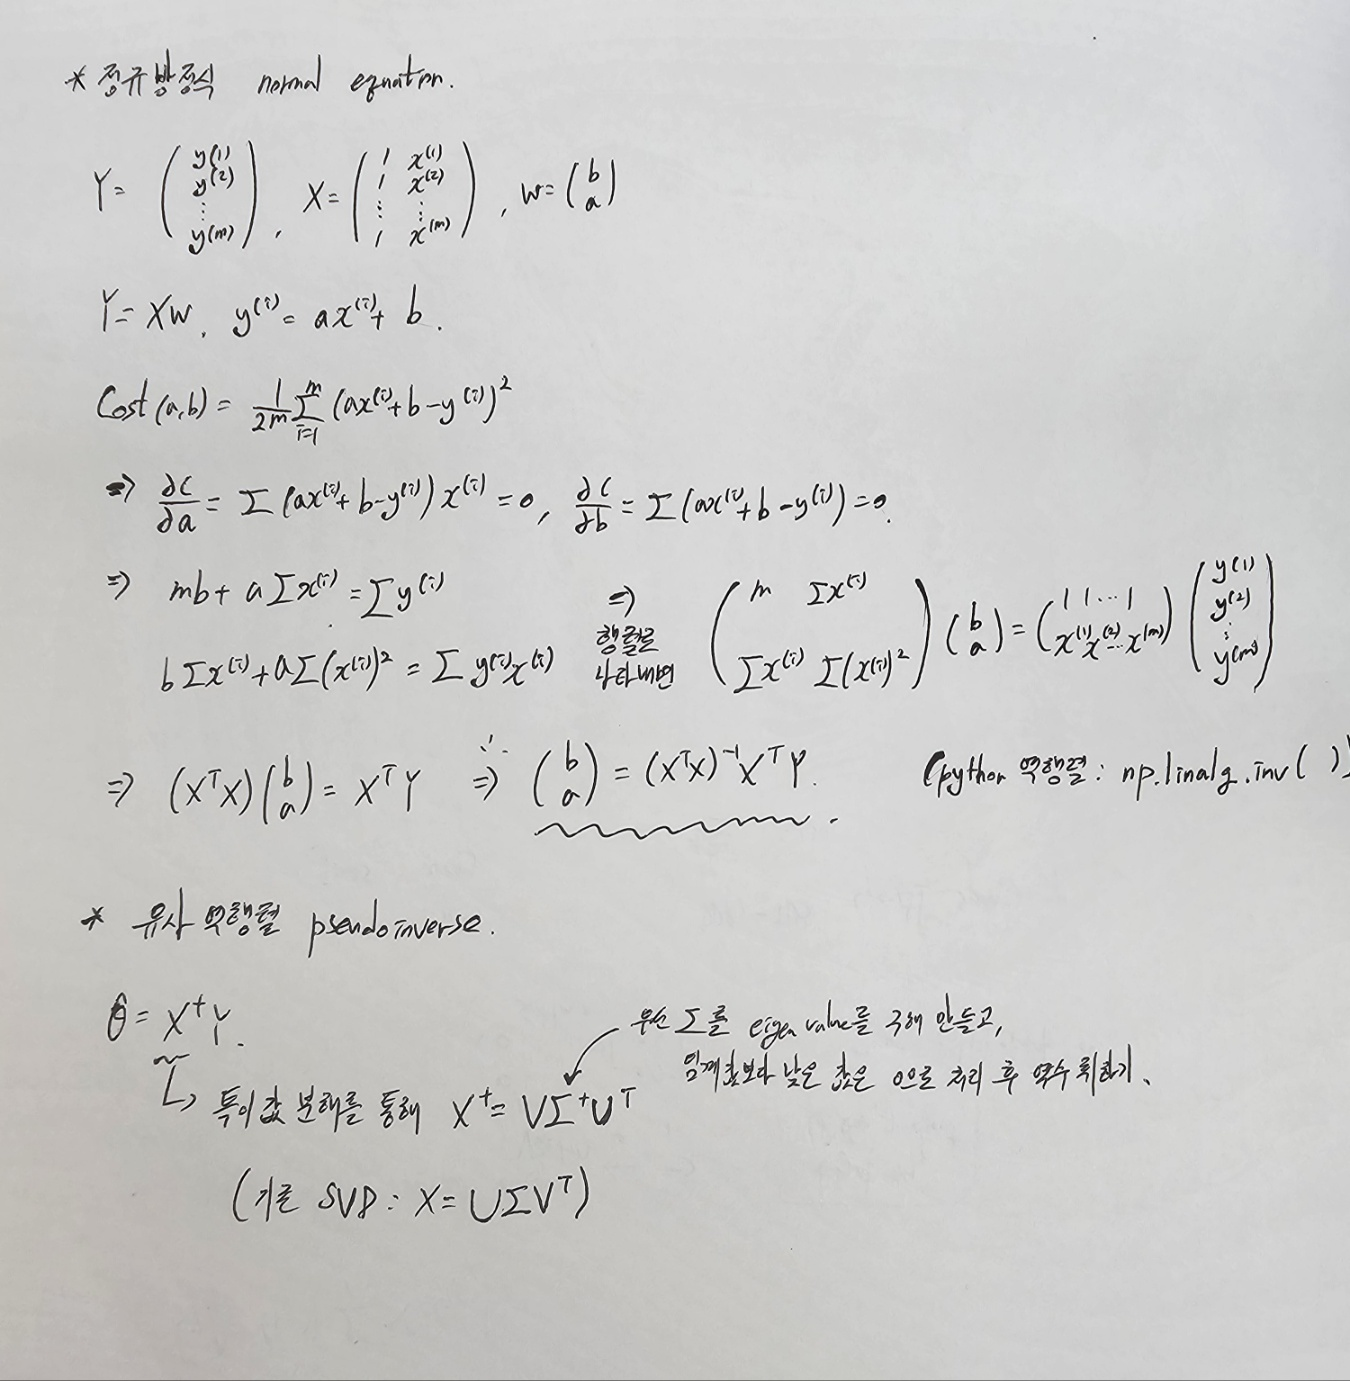 * 정규방정식 normal equation.
Y= ( y(1) y(2) ⋮ y(m) ), X= ( 1 x(1) 1 x(2) ⋮ ⋮ 1 x(m) ), w= ( b a )
Y= Xw. y(i) = ax(i) + b.
Cost(a,b) = 1/2m Σ i=1 m (ax(i)+b-y(i))²
⇒ ∂C/∂a = Σ (ax(i)+b-y(i)) x(i) = 0, ∂C/∂b = Σ (ax(i)+b-y(i)) = 0.
⇒ mb + aΣx(i) = Σy(i)
bΣx(i) + aΣ(x(i))² = Σ y(i)x(i)
⇒ 행렬로 나타내면 ( m Σx(i) Σx(i) Σ(x(i))² ) ( b a ) = ( 1 1 ... 1 x(1) x(2) ... x(m) ) ( y(1) y(2) ⋮ y(m) )
⇒ (XᵀX) ( b a ) = XᵀY ∴ ⇒ ( b a ) = (XᵀX)⁻¹XᵀY. (python 역행렬: np.linalg.inv( ))
* 유사 역행렬 pseudoinverse.
θ̂ = X⁺Y.
우선 Σ를 eigen value를 구해 만들고,
임계값보다 낮은 값은 0으로 처리 후 역수 취하기.
↳ 특이값 분해를 통해 X⁺ = VΣ⁺Uᵀ
(기존 SVD: X= UΣVᵀ)